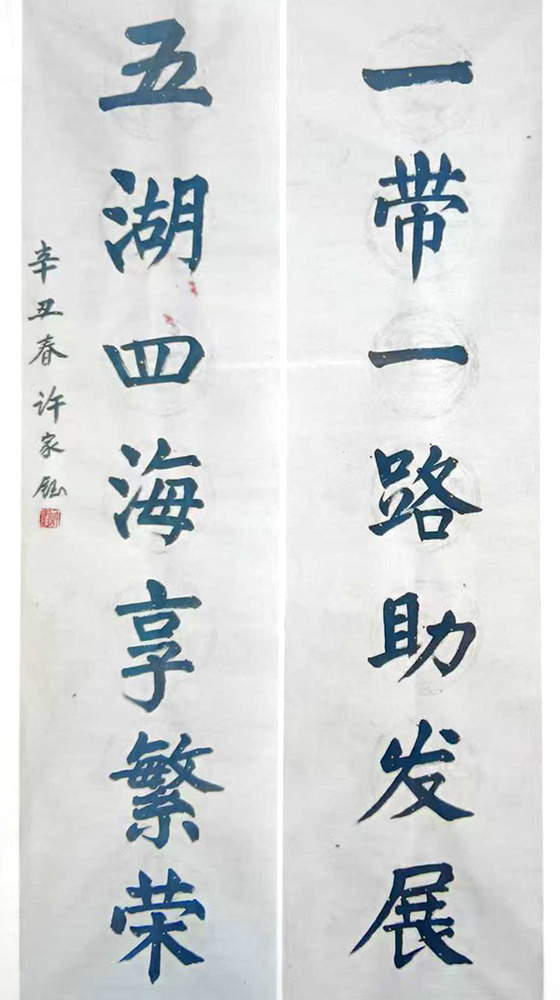 一带一路助发展
五湖四海享繁荣
辛丑春许家钰